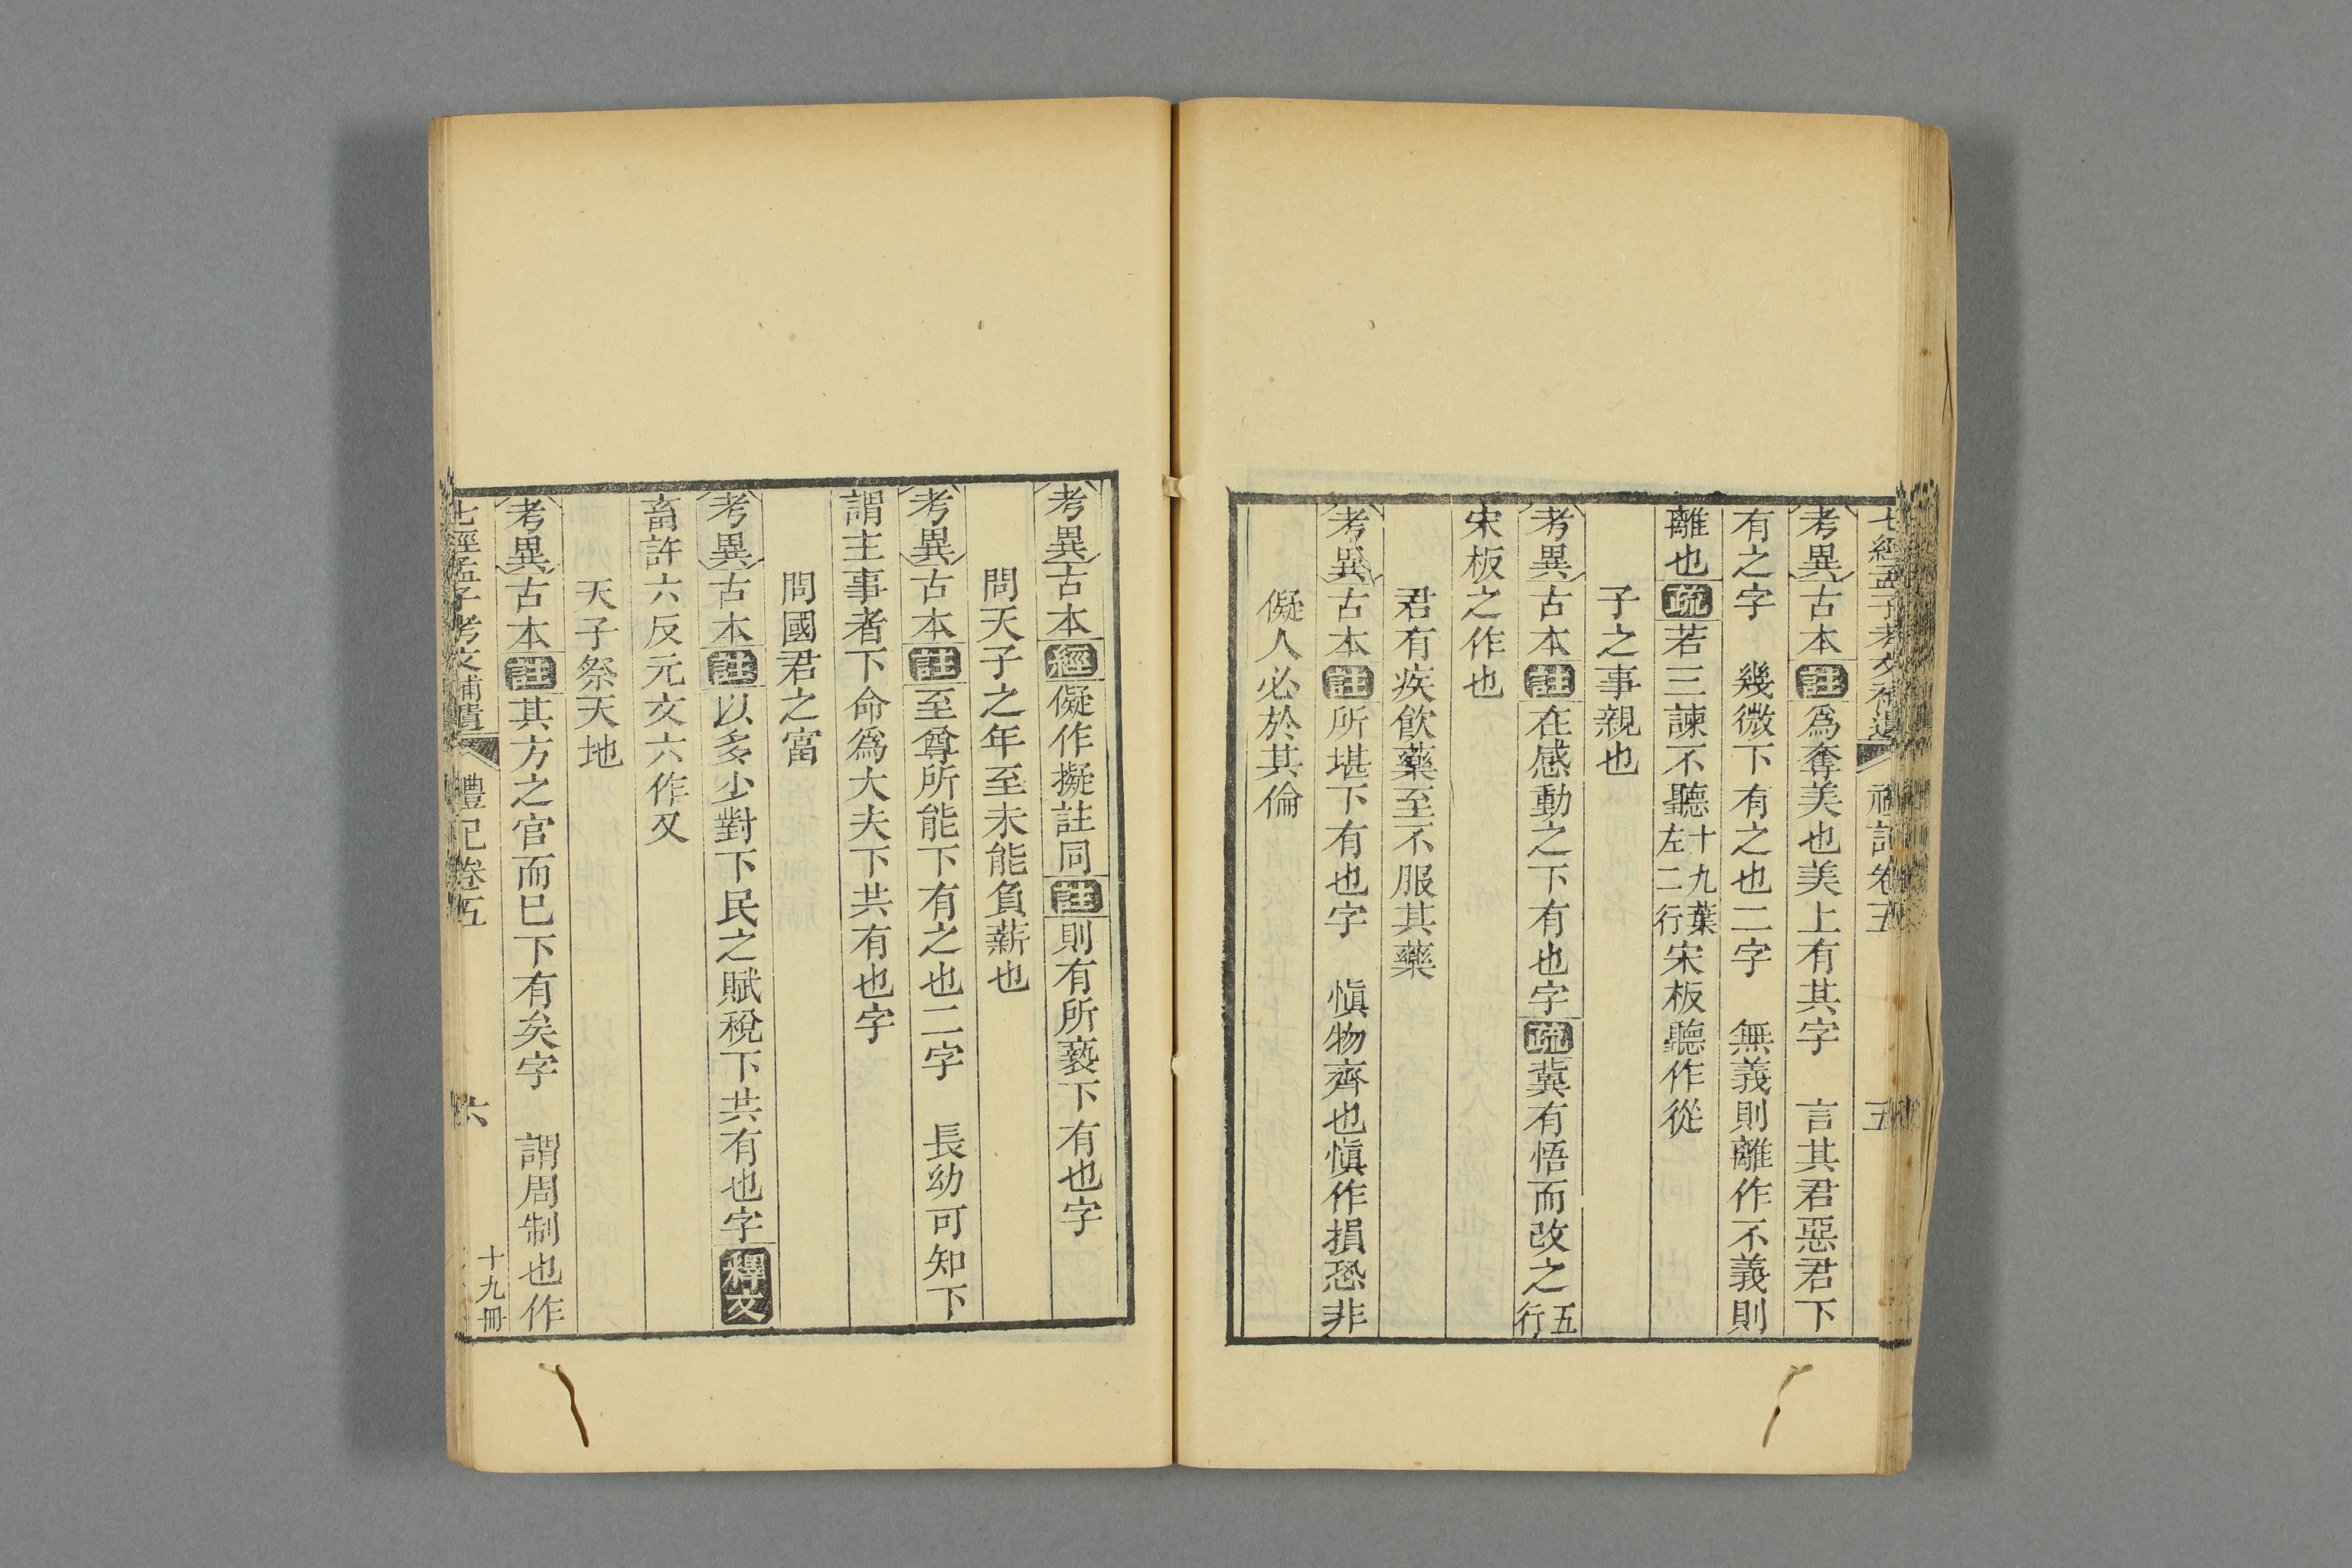 七經孟子考文補遺 禮記卷五 五
考異古本註爲奪美也美上有其字 言其君惡君下
有之字 幾微下有之也二字 無義則離作不義則
離也疏若三諫不聽十九葉左二行宋板聽作從
子之事親也
考異古本註在感動之下有也字疏冀有悟而改之五行
宋板之作也
君有疾飲藥至不服其藥
考異古本註所堪下有也字 愼物齊也愼作損恐非
儗人必於其倫
考異古本經儗作擬註同註則有所褻下有也字
問天子之年至未能負薪也
考異古本註至尊所能下有之也二字 長幼可知下
謂主事者下命爲大夫下共有也字
問國君之富
考異古本註以多少對下民之賦稅下共有也字釋文
畜許六反元文六作又
天子祭天地
考異古本註其方之官而已下有矣字 謂周制也作
七經孟子考文補遺 禮記卷五 六 十九冊